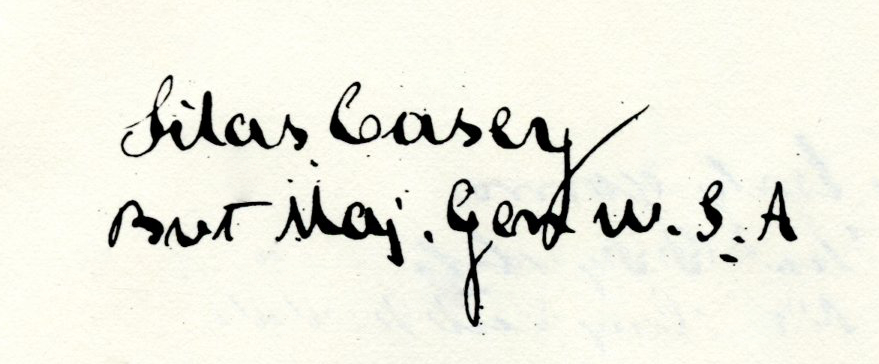 Silas Casey
Bvt Maj. Gen U.S.A